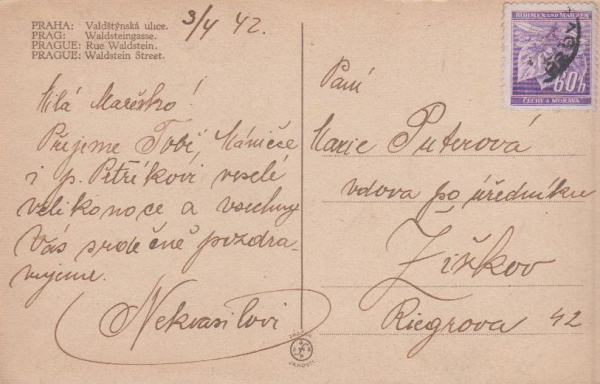 PRAHA: Valdštýnská ulice.
PRAG: Waldsteingasse.
PRAGUE: Rue Waldstein.
PRAGUE: Waldstein Street.
3/4 42.
BÖHMEN UND MÄHREN
60h
ČECHY A MORAVA
Milá Mareško!
Přejeme Tobě, Mániče
i p. Petříkovi veselé
velikonoce a všechny
Vás srdečně pozdra-
vujeme.
Nekvasilovi
Paní
Marie Puterová
vdova po úředníku
Žižkov
Riegrova 42